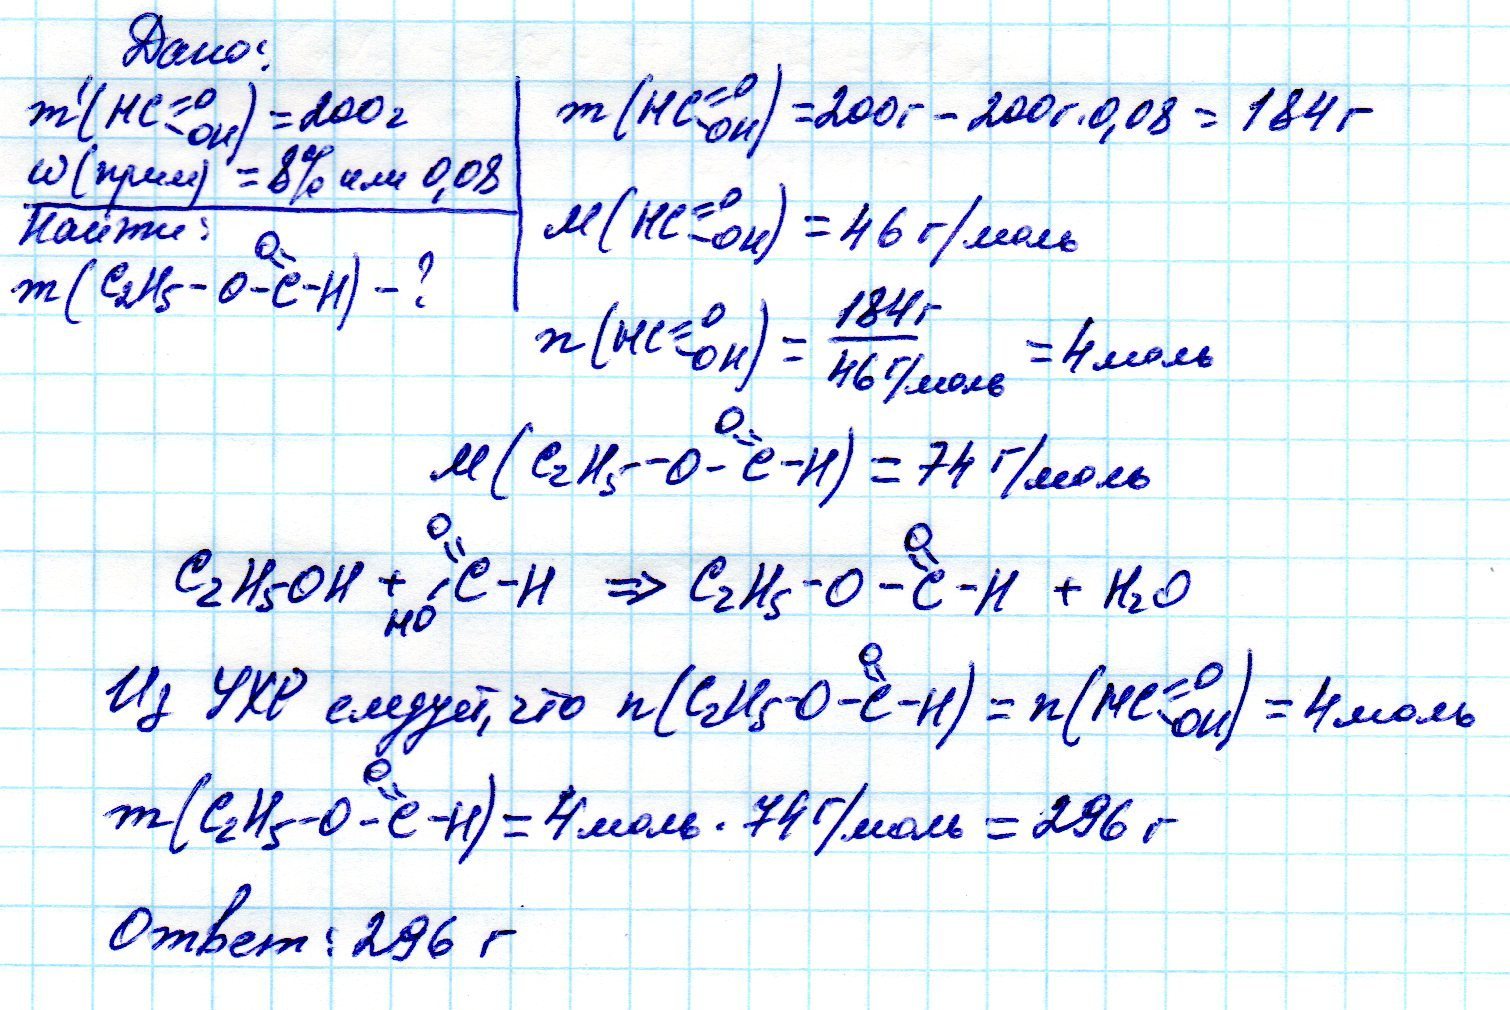 Дано:
m'(HC=O-OH) = 200г
ω(прим) = 8% или 0,08
Найти:
m(C2H5-O-C(=O)-H) - ?
m(HC=O-OH) = 200г - 200г·0,08 = 184г
M(HC=O-OH) = 46 г/моль
n(HC=O-OH) = 184г / 46г/моль = 4 моль
M(C2H5-O-C(=O)-H) = 74 г/моль
C2H5OH + HO-C(=O)-H ⇒ C2H5-O-C(=O)-H + H2O
Из УХР следует, что n(C2H5-O-C(=O)-H) = n(HC=O-OH) = 4 моль
m(C2H5-O-C(=O)-H) = 4 моль · 74 г/моль = 296 г
Ответ: 296 г